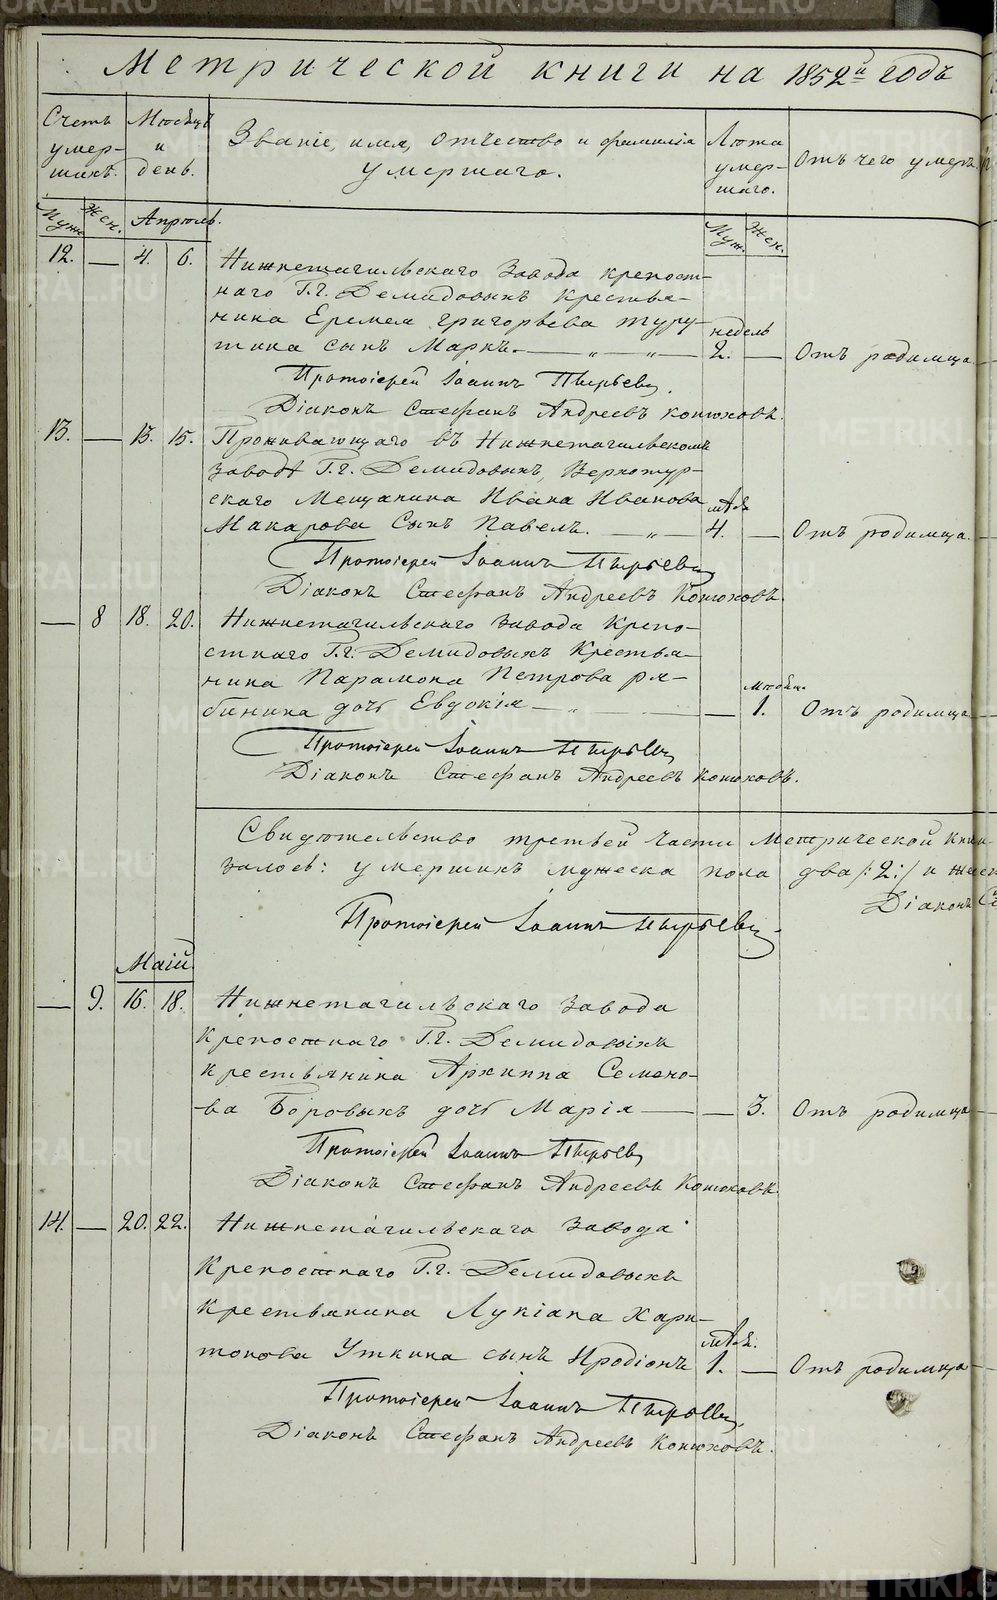 Метрической книги на 1852й годъ
Счетъ умер-шихъ.
Мѣсяцъ и день.
Званіе, имя, отчество и фамилія умершаго.
Лѣта умер-шаго.
Отъ чего умеръ.
Муж. Жен. Апрѣль. Муж. Жен.
12. — 4. 6. Нижнетагильскаго завода крѣпост-
наго Г.г. Демидовыхъ Крестья-
нина Еремея Григорьева Туру-
недѣль
тина сынъ Маркъ. — „ — „ — 2. — Отъ родимца
Протоіерей Іоаннъ Пырьевъ.
Діаконъ Стефанъ Андреевъ Конюховъ.
13. — 13. 15. Проживающаго въ Нижнетагильскомъ
заводѣ Г.г. Демидовыхъ, Верхотур-
скаго Мещанина Ивана Иванова
мѣс.
Макарова Сынъ Павелъ. — „ — 4. — Отъ родимца.
Протоіерей Іоаннъ Пырьевъ
Діаконъ Стефанъ Андреевъ Конюховъ.
— 8 18. 20. Нижнетагильскаго завода Крепо-
стнаго Г.г. Демидовыхъ Крестья-
нина Парамона Петрова Ря-
Мѣсяц.
бинина дочь Евдокія — „ — — 1. Отъ родимца
Протоіерей Іоаннъ Пырьевъ
Діаконъ Стефанъ Андреевъ Конюховъ.
Свидѣтельство третьей части Метрической Кни
залось: умершихъ мужеска пола два /:2:/ и жес
Діаконъ С
Протоіерей Іоаннъ Пырьевъ
Маій.
— 9. 16. 18. Нижнетагильскаго завода
Крепостнаго Г.г. Демидовыхъ
Крестьянина Архиппа Семено-
ва Боровыхъ дочь Марія — — 3. Отъ родимца
Протоіерей Іоаннъ Пырьевъ
Діаконъ Стефанъ Андреевъ Конюховъ.
14. — 20. 22. Нижнетагильскаго завода
Крепостнаго Г.г. Демидовыхъ
Крестьянина Лукіана Хари-
мѣс.
тонова Уткина сынъ Иродіонъ 1. — Отъ родимца
Протоіерей Іоаннъ Пырьевъ.
Діаконъ Стефанъ Андреевъ Конюховъ.
METRIKI.GASO-URAL.RU